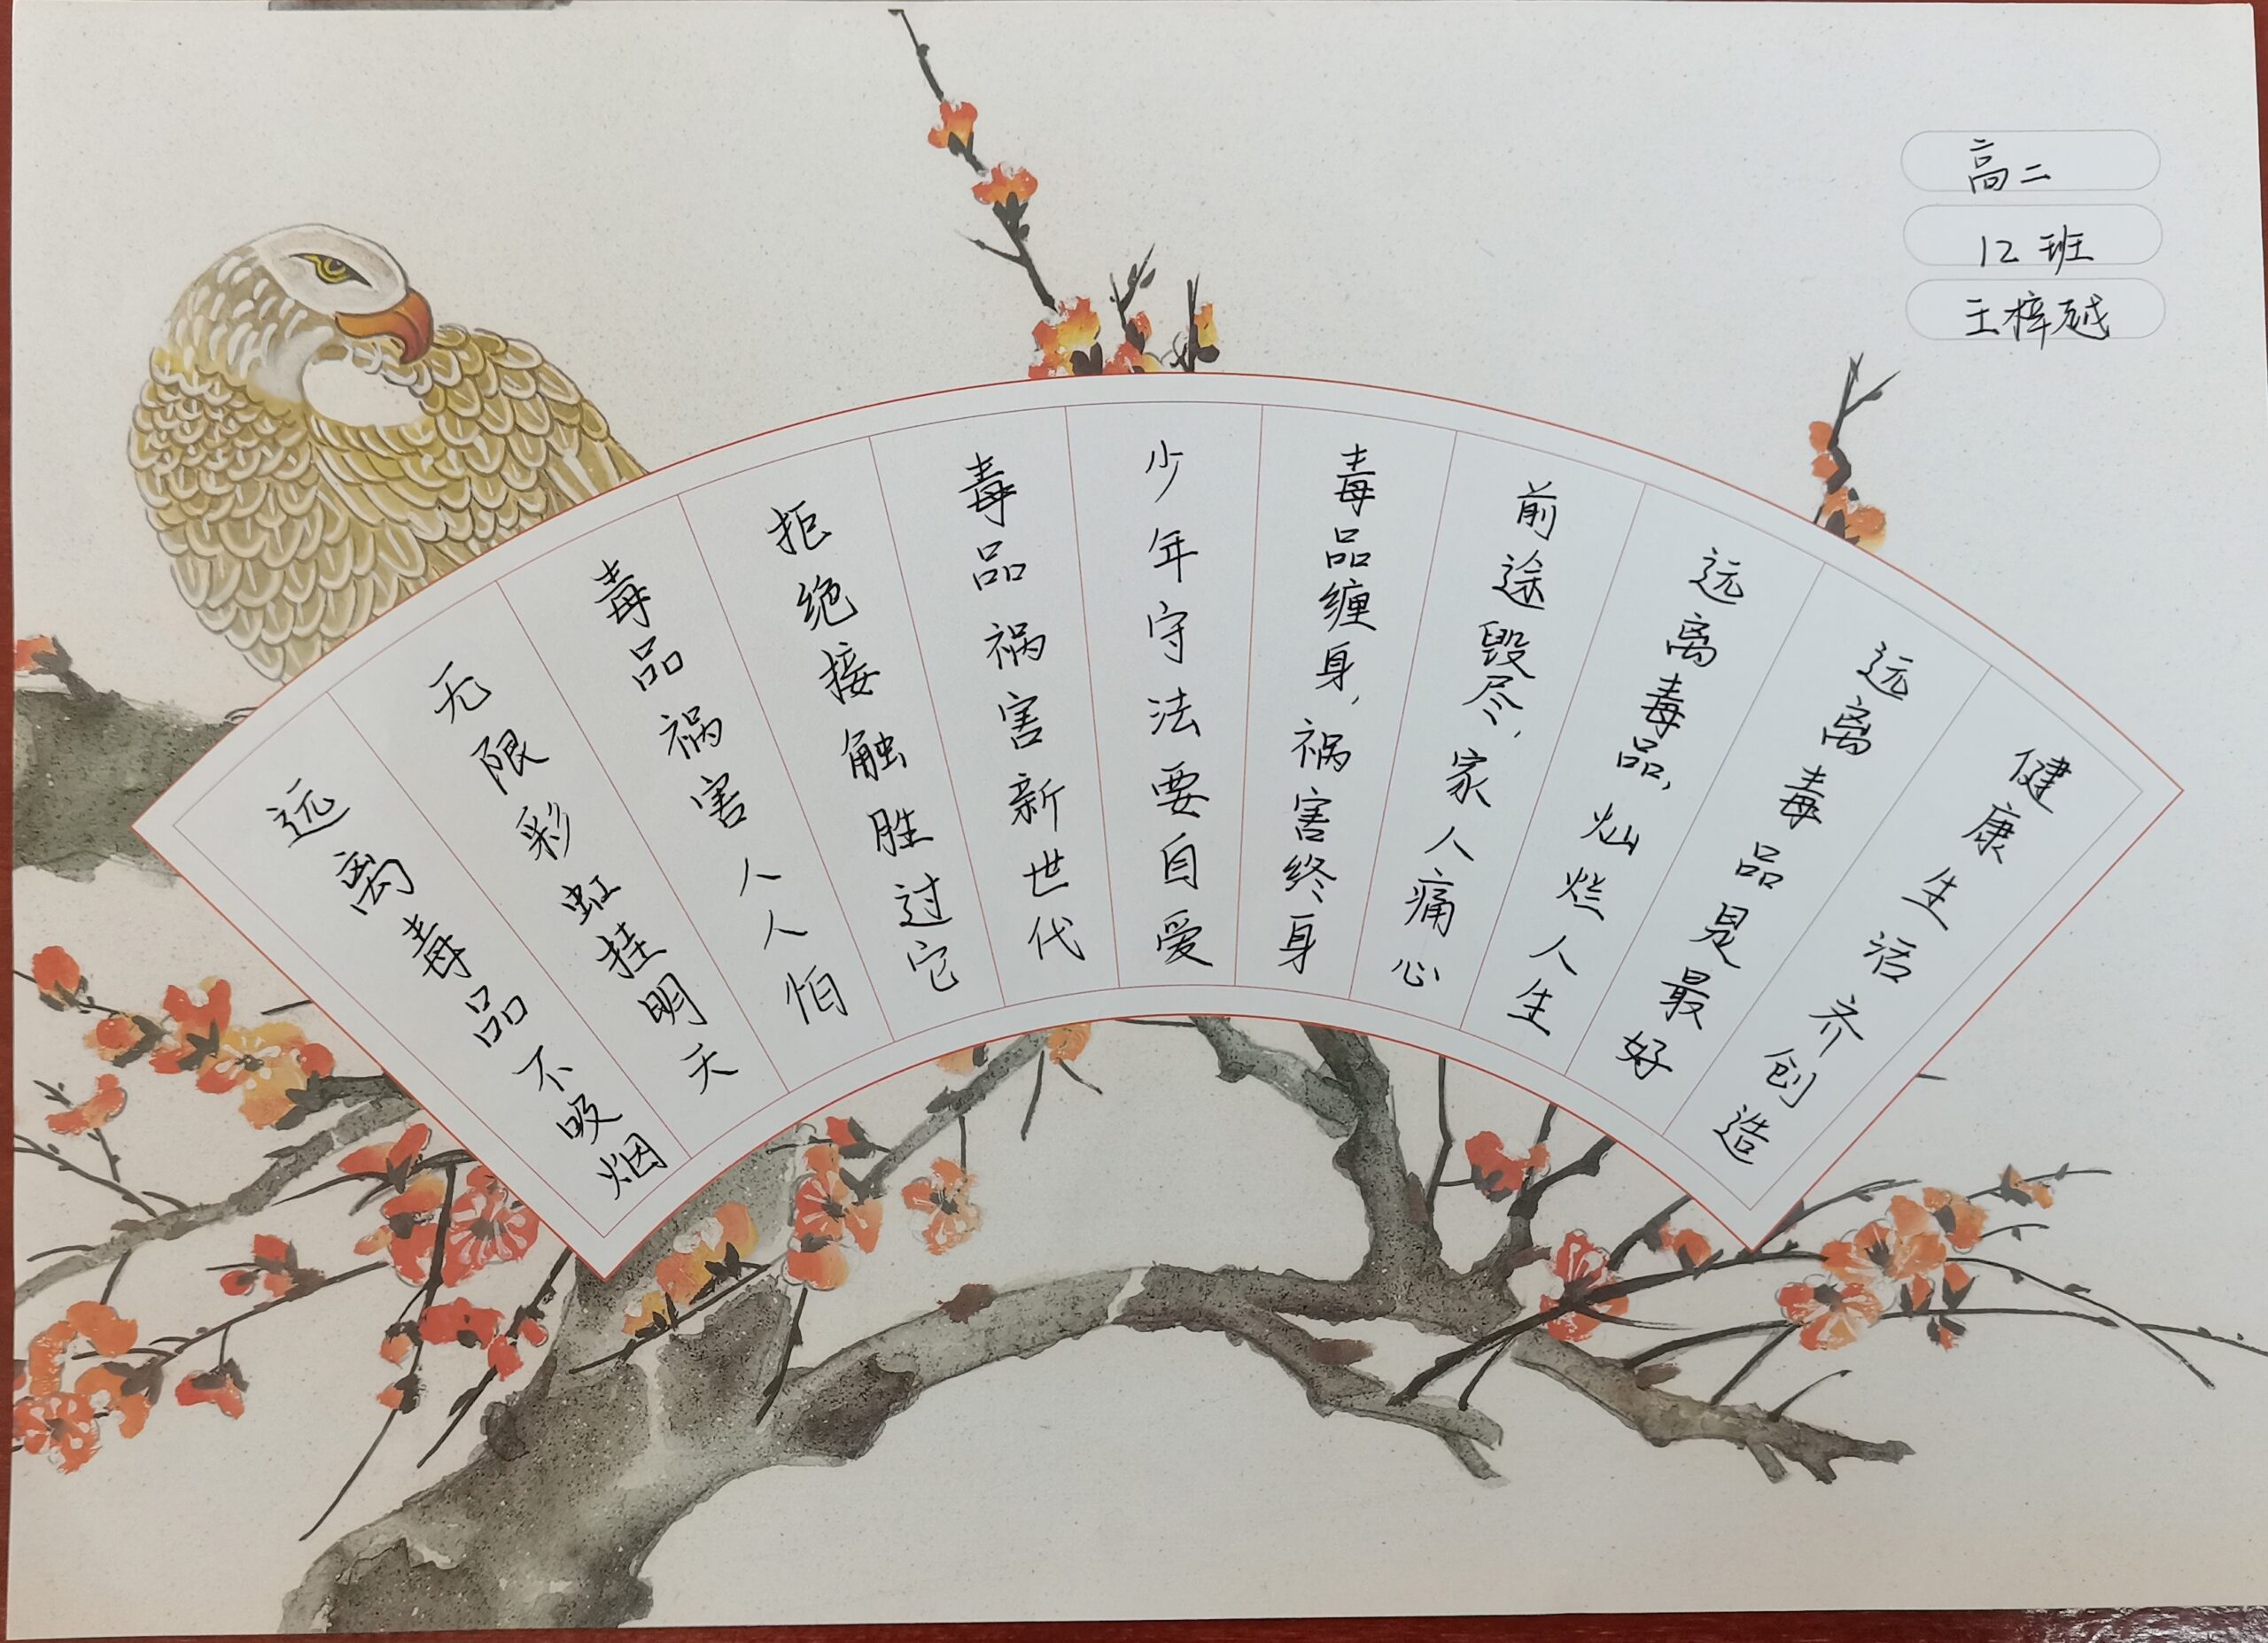 高二
12班
王梓越
远离毒品不吸烟
无限彩虹挂明天
毒品祸害人人怕
拒绝接触胜过它
毒品祸害新世代
少年守法要自爱
毒品缠身，祸害终身
前途毁尽，家人痛心
远离毒品，灿烂人生
远离毒品是最好
健康生活齐创造